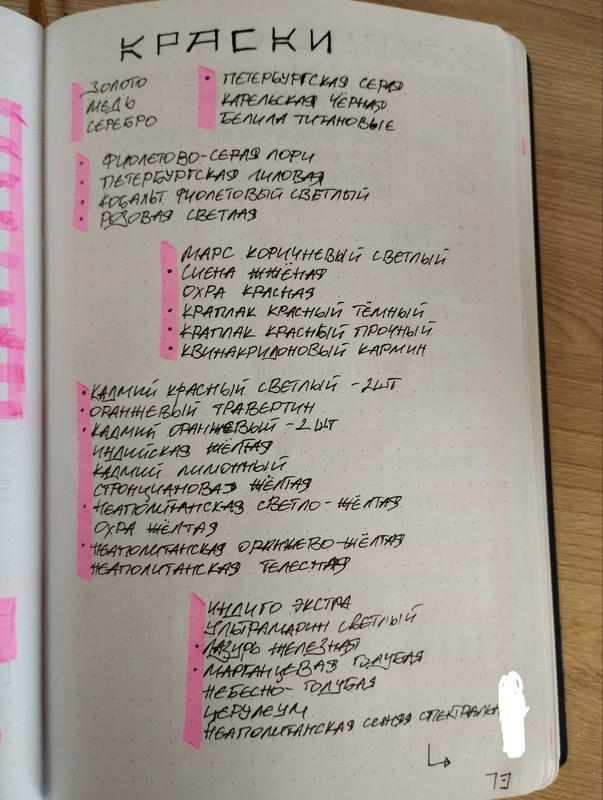 КРАСКИ
ЗОЛОТО
МЕДЬ
СЕРЕБРО
• ПЕТЕРБУРГСКАЯ СЕРАЯ
КАРЕЛЬСКАЯ ЧЁРНАЯ
БЕЛИЛА ТИТАНОВЫЕ
ФИОЛЕТОВО-СЕРАЯ ЛОРИ
• ПЕТЕРБУРГСКАЯ ЛИЛОВАЯ
• КОБАЛЬТ ФИОЛЕТОВЫЙ СВЕТЛЫЙ
• РОЗОВАЯ СВЕТЛАЯ
МАРС КОРИЧНЕВЫЙ СВЕТЛЫЙ
• СИЕНА ЖЖЁНАЯ
ОХРА КРАСНАЯ
• КРАПЛАК КРАСНЫЙ ТЁМНЫЙ
• КРАПЛАК КРАСНЫЙ ПРОЧНЫЙ
• КВИНАКРИДОНОВЫЙ КАРМИН
• КАДМИЙ КРАСНЫЙ СВЕТЛЫЙ - 2ШТ
• ОРАНЖЕВЫЙ ТРАВЕРТИН
• КАДМИЙ ОРАНЖЕВЫЙ - 2 ШТ
ИНДИЙСКАЯ ЖЁЛТАЯ
КАДМИЙ ЛИМОННЫЙ
СТРОНЦИАНОВАЯ ЖЁЛТАЯ
• НЕАПОЛИТАНСКАЯ СВЕТЛО-ЖЁЛТАЯ
ОХРА ЖЁЛТАЯ
• НЕАПОЛИТАНСКАЯ ОРАНЖЕВО-ЖЁЛТАЯ
НЕАПОЛИТАНСКАЯ ТЕЛЕСНАЯ
ИНДИГО ЭКСТРА
УЛЬТРАМАРИН СВЕТЛЫЙ
• ЛАЗУРЬ ЖЕЛЕЗНАЯ
• МАРГАНЦЕВАЯ ГОЛУБАЯ
НЕБЕСНО-ГОЛУБАЯ
ЦЕРУЛЕУМ
НЕАПОЛИТАНСКАЯ СИНЯЯ